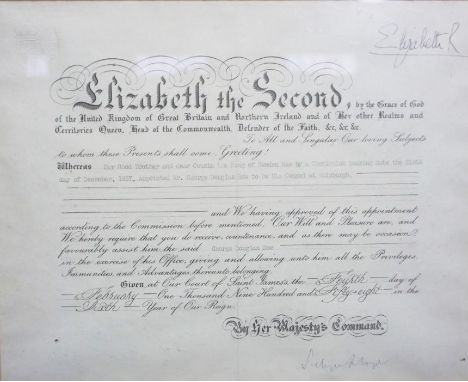 Elizabeth R
Elizabeth the Second, by the Grace of God
of the United Kingdom of Great Britain and Northern Ireland and of Her other Realms and
Territories Queen, Head of the Commonwealth, Defender of the Faith, &c, &c, &c.
To All and Singular Our loving Subjects
to whom these Presents shall come Greeting!
Whereas Our Good Brother and dear Cousin the King of Sweden has by a Commission bearing date the
day of December, 1957, appointed Mr. George Douglas to be his Consul at Edinburgh.
and We having approved of this appointment
according to the Commission before mentioned, Our Will and Pleasure are, and
We hereby require that you do receive, countenance, and, as there may be occasion,
favourably assist him the said George Douglas
in the exercise of his Office, giving and allowing unto him all the Privileges,
Immunities and Advantages thereunto belonging.
Given at Our Court of Saint James's, the Fourth day of
February One Thousand Nine Hundred and Fifty-eight in the
Sixth Year of Our Reign.
By Her Majesty's Command.